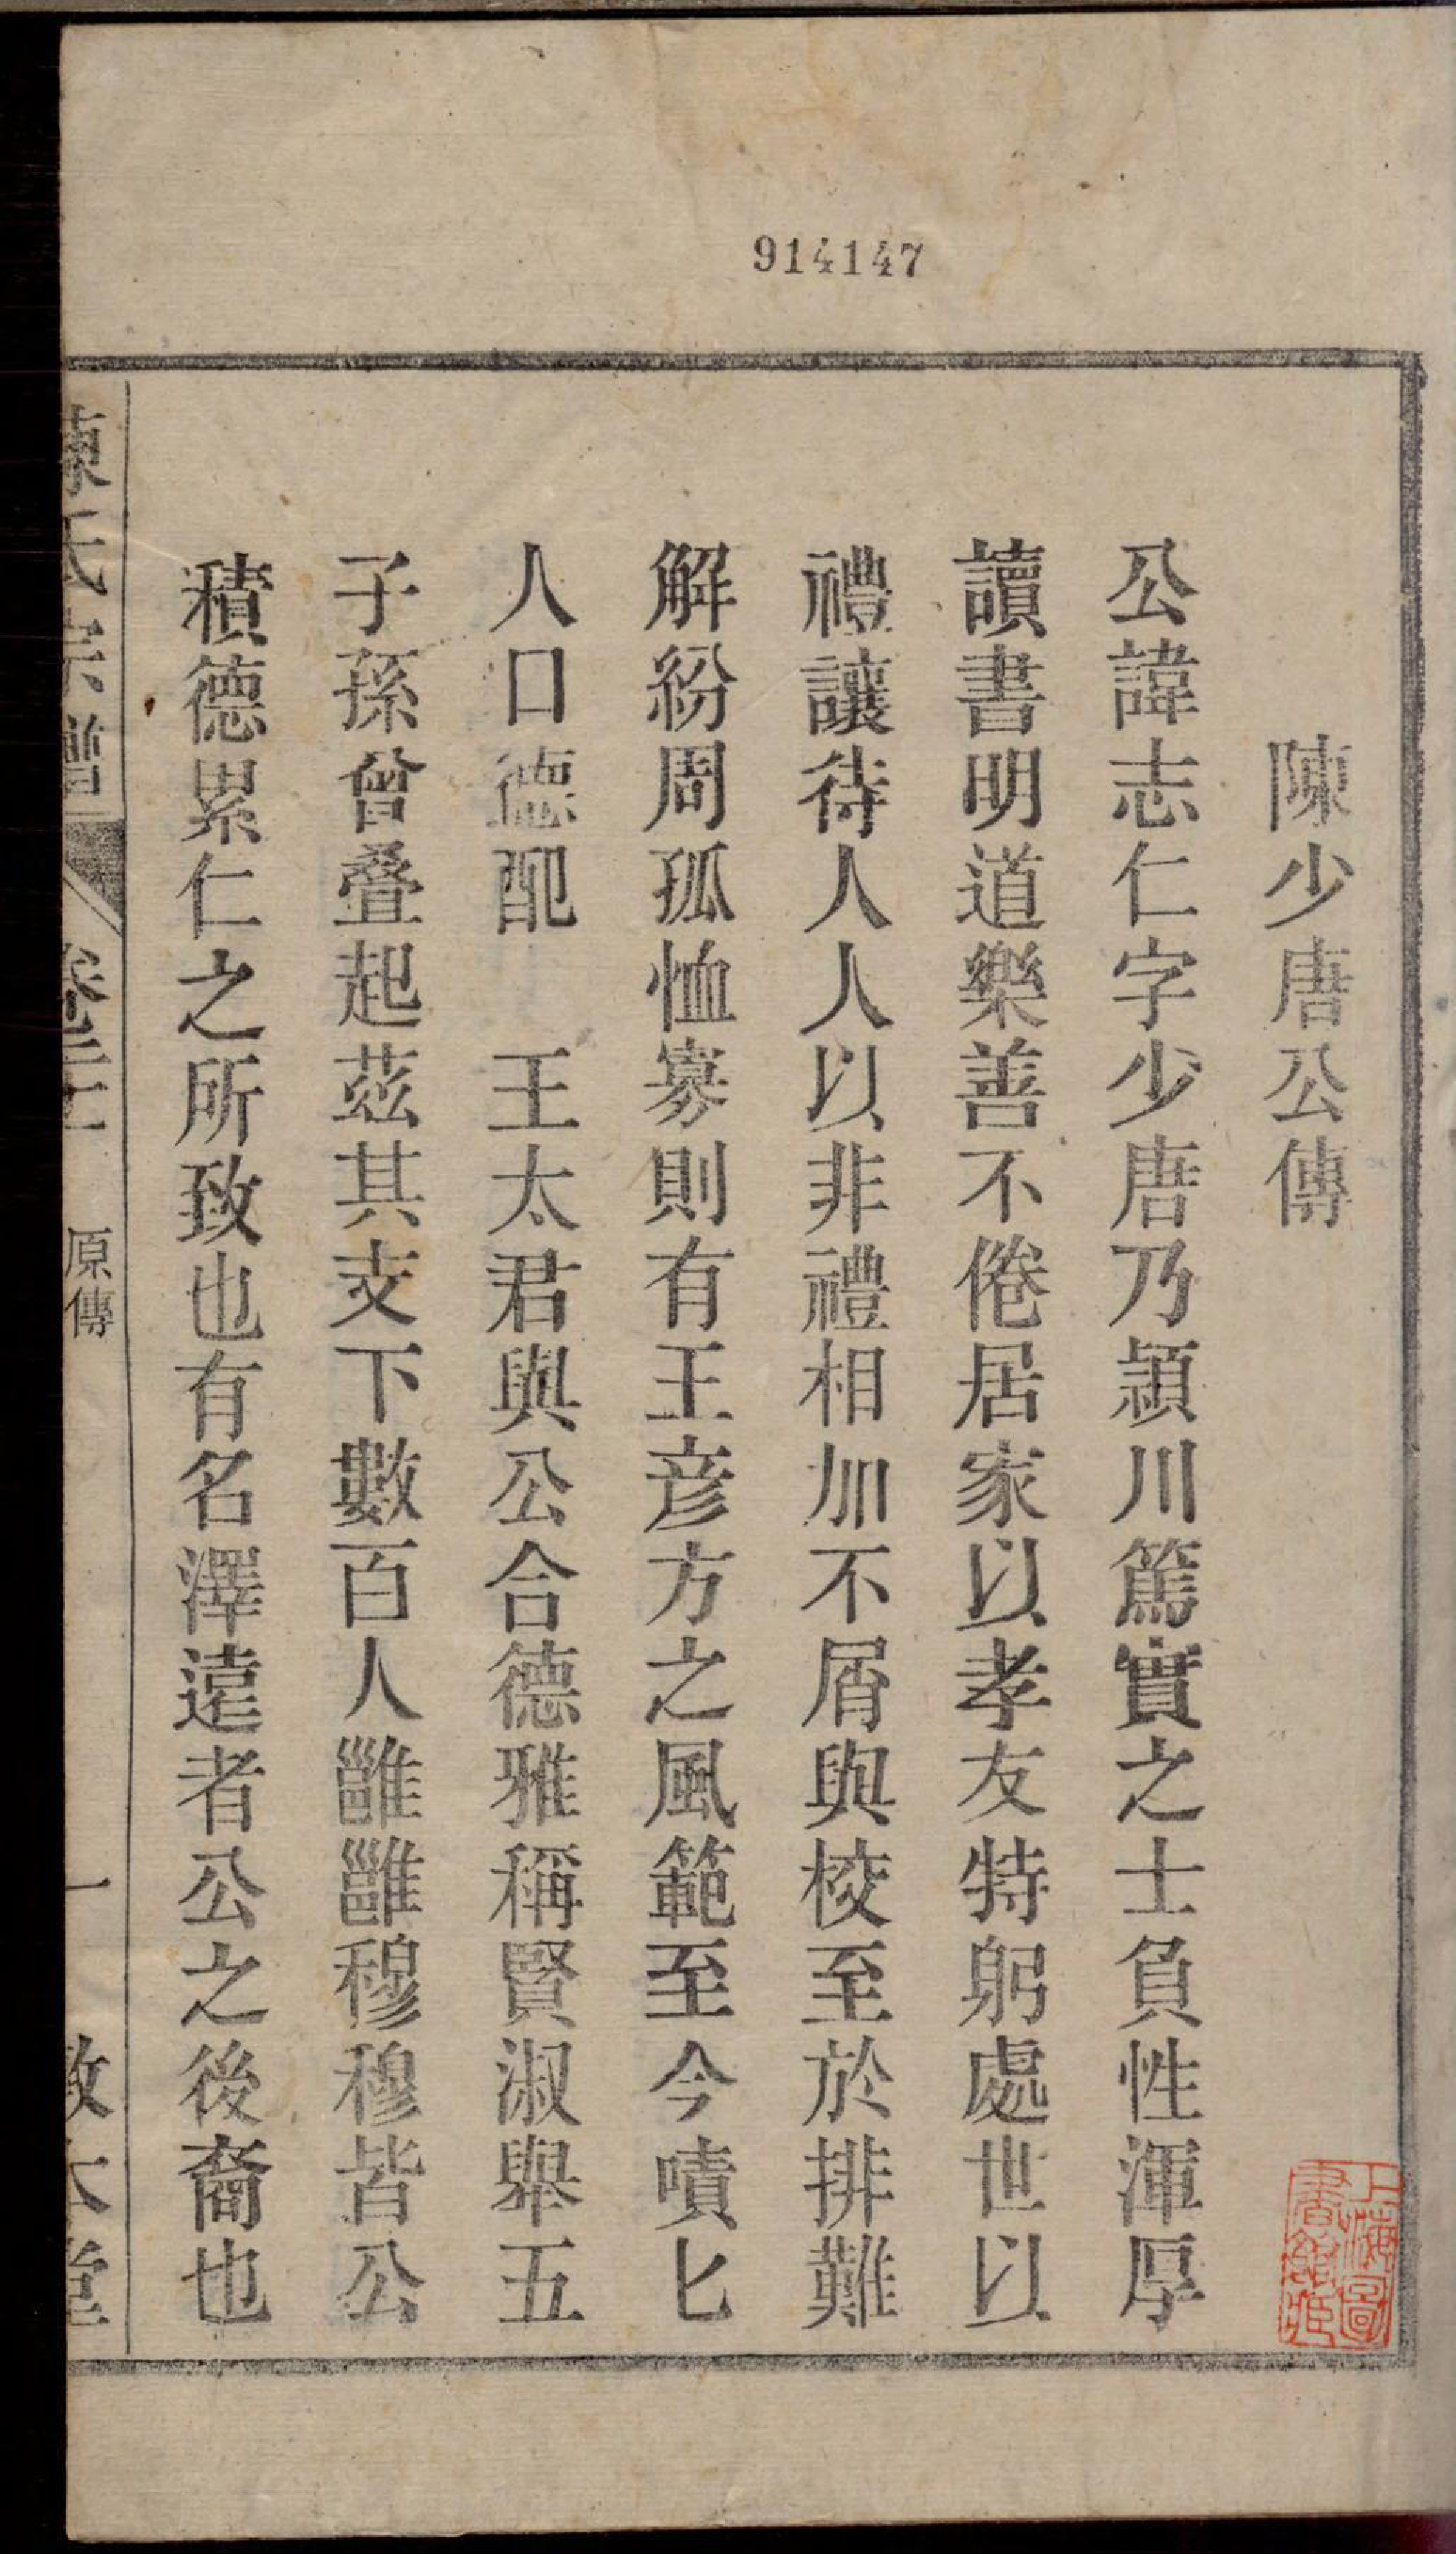 914147
陳少唐公傳
公諱志仁字少唐乃潁川篤實之士負性渾厚
讀書明道樂善不倦居家以孝友特躬處世以
禮讓待人人以非禮相加不屑與校至於排難
解紛周孤恤寡則有王彥方之風範至今嘖匕
人口德配 王太君與公合德雅稱賢淑舉五
子孫曾叠起茲其支下數百人雝雝穆穆皆公
積德累仁之所致也有名澤遠者公之後裔也
陳氏宗譜 卷二十 原傳 一 敦本堂
上海圖書館藏